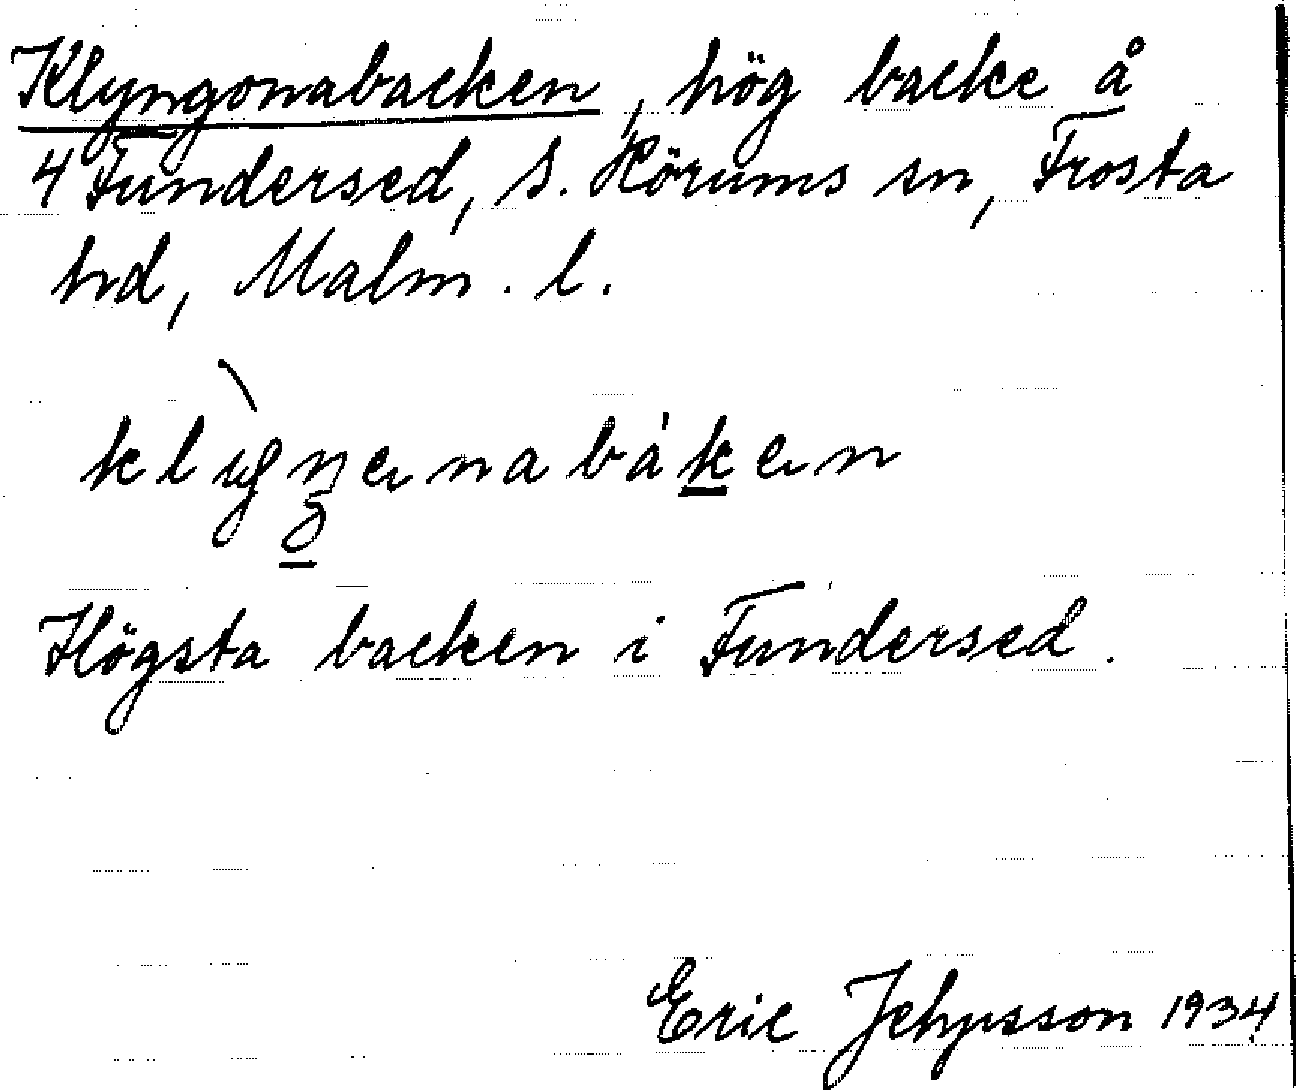 Klyngonabacken, hög backe å
4 Fundersed, S. Hörums sn, Frosta
hd, Malm. l.
klyŋenabáken
Högsta backen i Fundersed.
Eric Jehpsson 1934